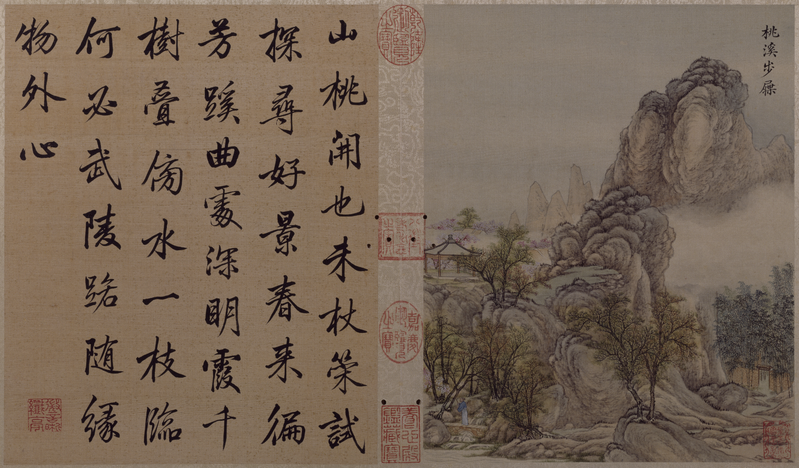 桃溪步屧
山桃開也未杖策試
探尋好景春来徧
芳蹊曲處深明霞千
樹疊傍水一枝臨
何必武陵路随緣
物外心
嘉慶御覽之寶